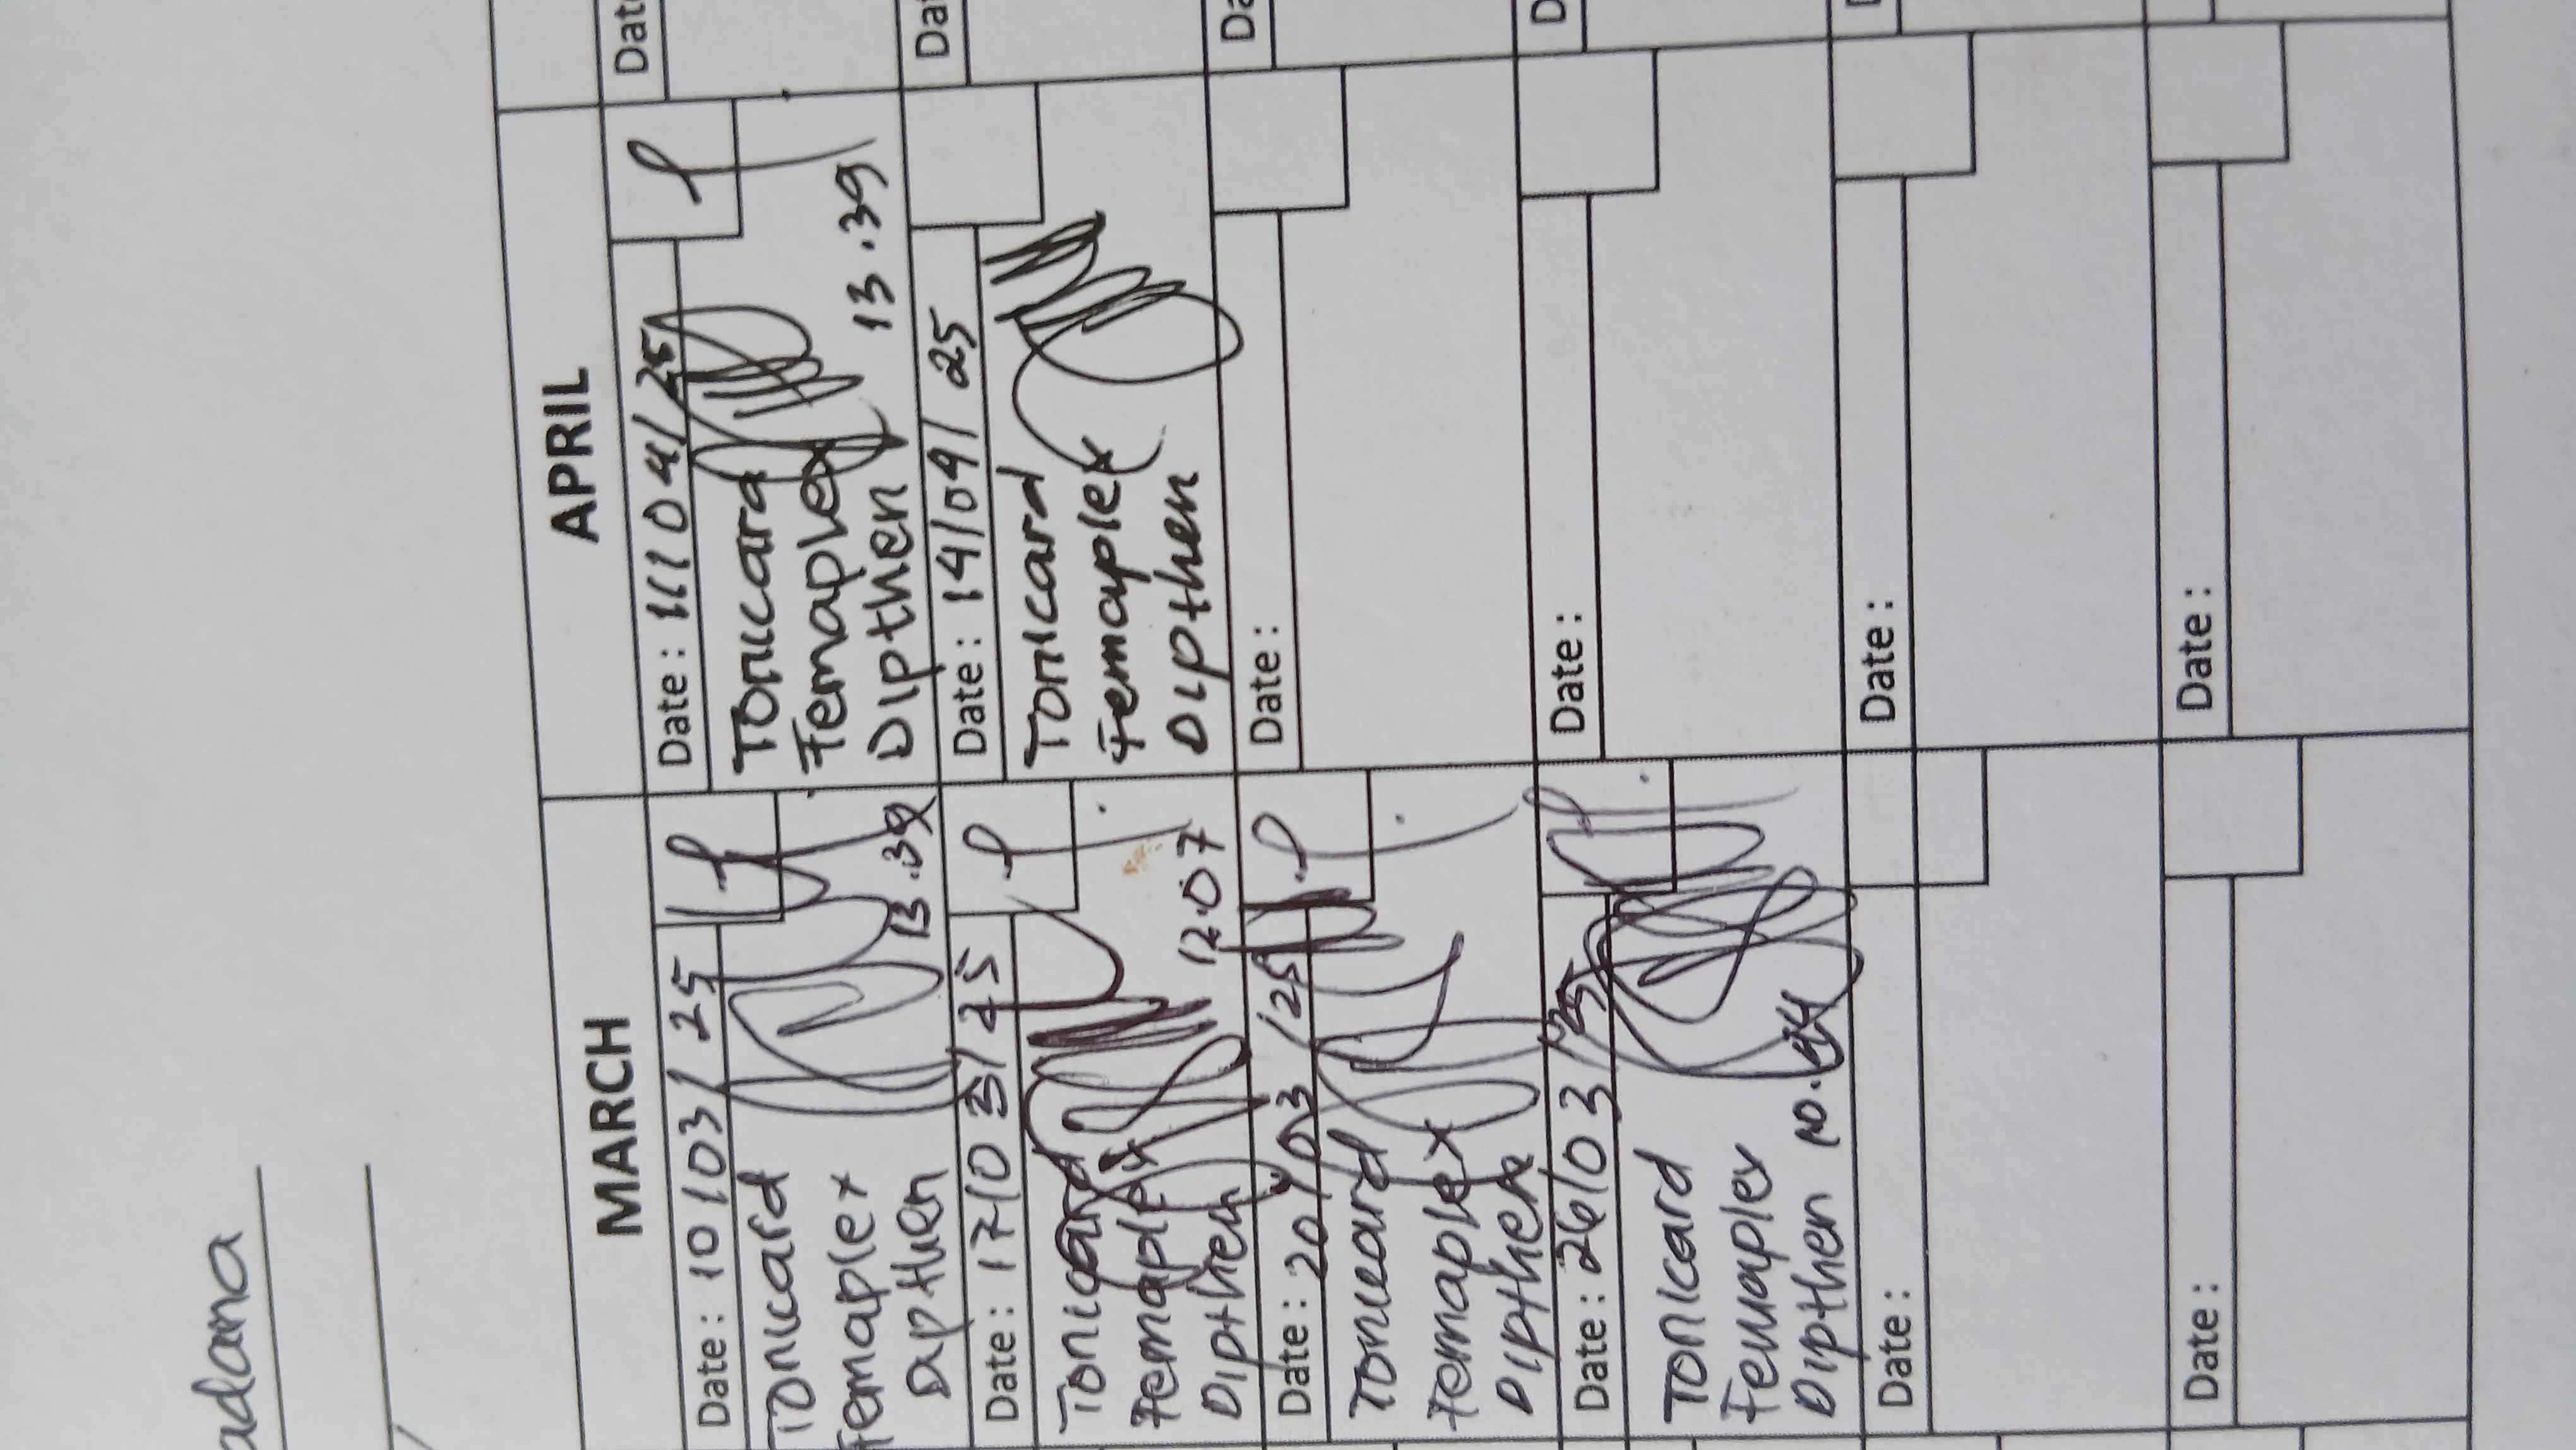 adana
MARCH
Date : 10 / 03 / 25
Tonicard
Femaplex
Dipthen
13.39
Date : 17/03/25
Tonicard
Femaplex
Dipthen
12.07
Date : 20/03/25
Tonicard
Femaplex
Dipthen
Date : 26/03/25
Tonicard
Femaplex
Dipthen
Date :
Date :
APRIL
Date : 11/04/25
Tonicard
Femaplex
Dipthen
13.39
Date : 14/04/25
Tonicard
Femaplex
Dipthen
Date :
Date :
Date :
Date :
Dat
Dat
Da
D